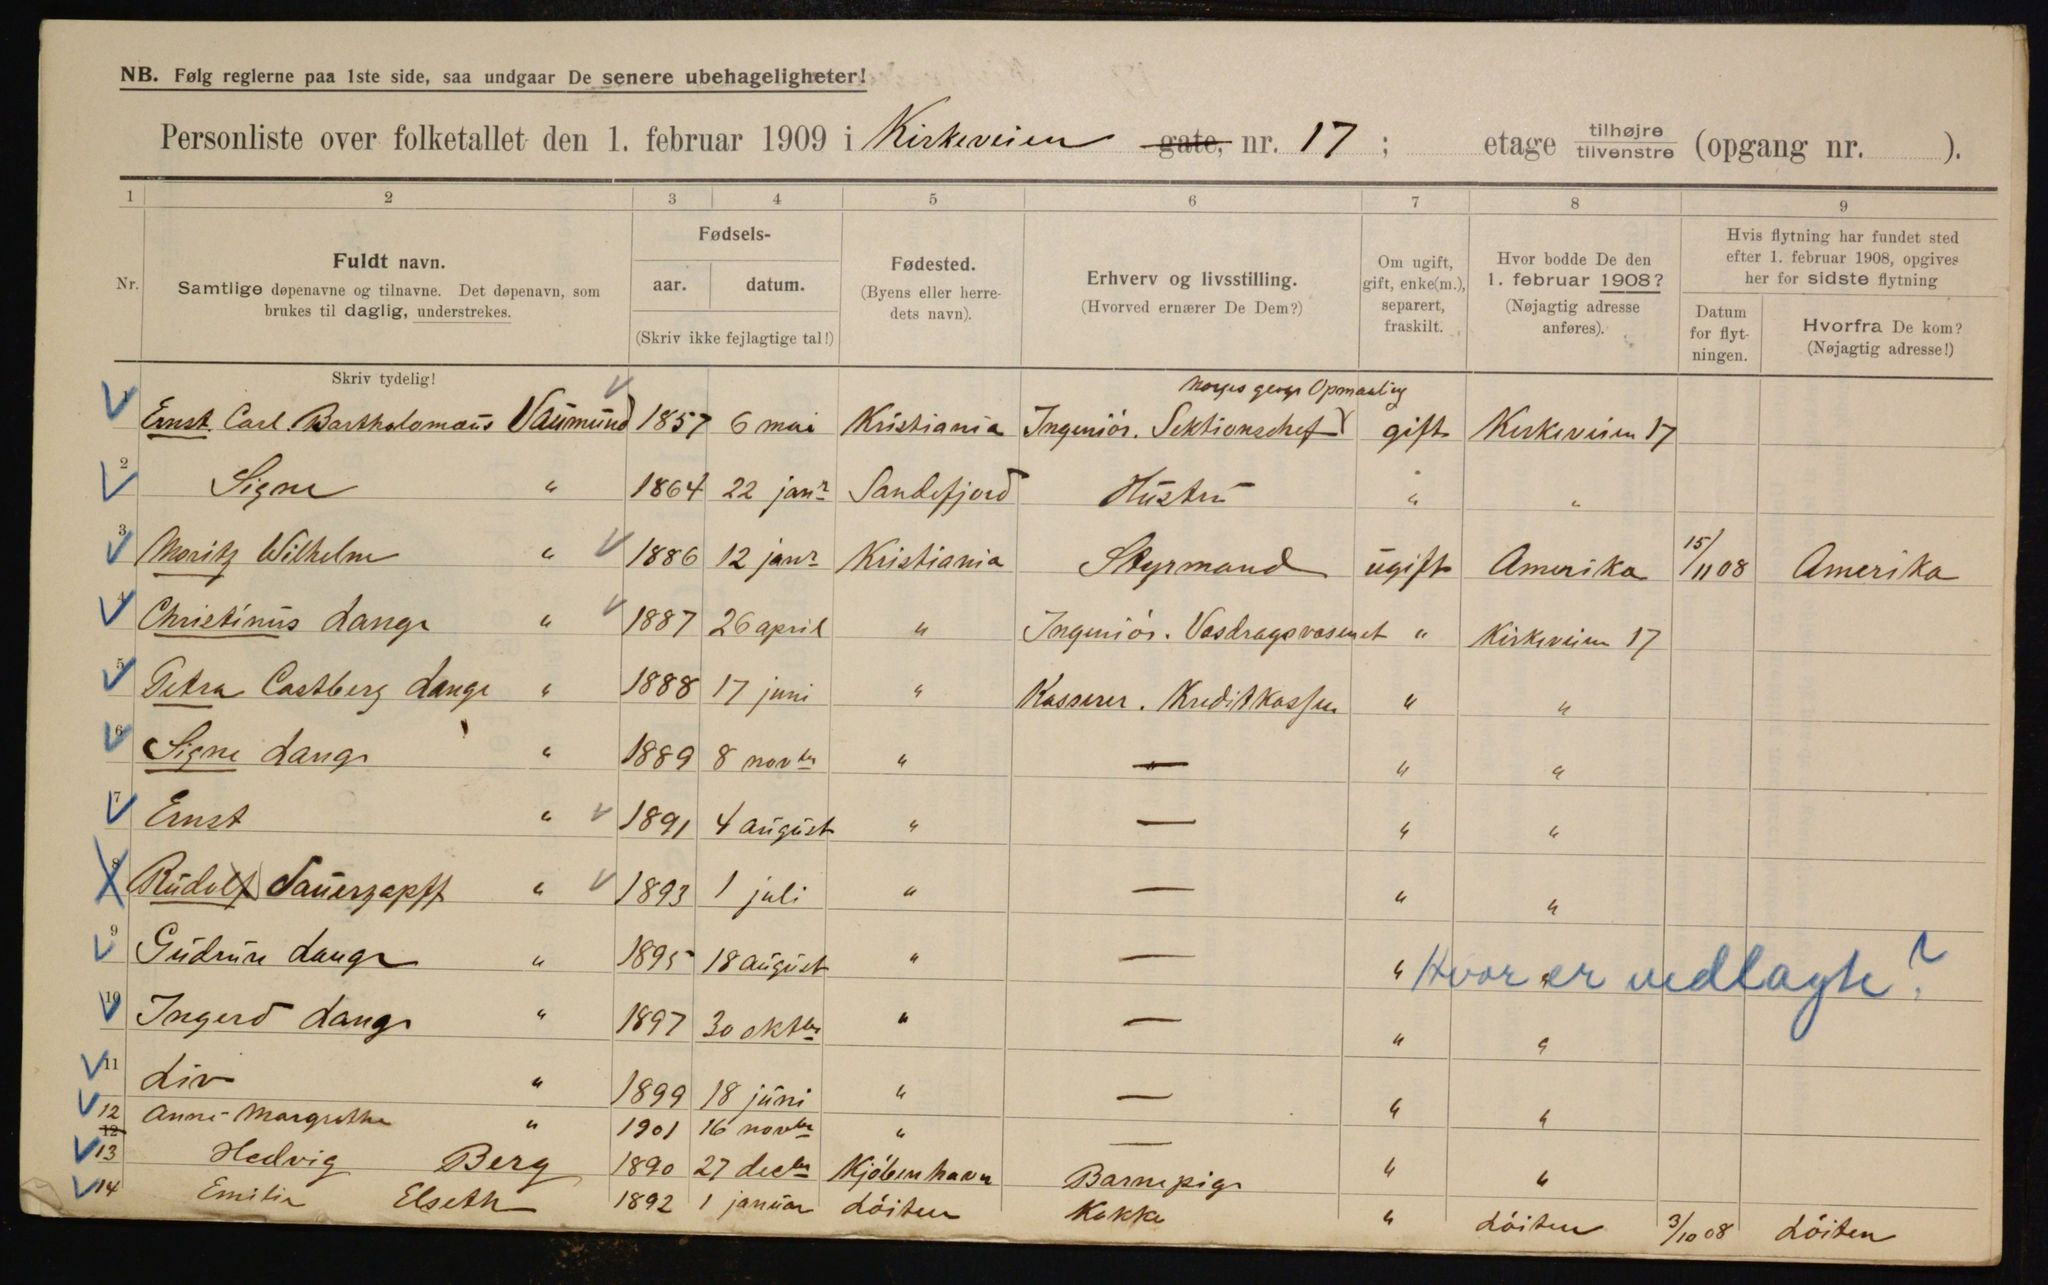 NB. Følg reglerne paa 1ste side, saa undgaar De senere ubehageligheter!
Personliste over folketallet den 1. februar 1909 i Kirkeveien gate, nr. 17 ; etage tilhøjre tilvenstre (opgang nr. ).
1 2 3 4 5 6 7 8 9
Nr. Fuldt navn. Samtlige døpenavne og tilnavne. Det døpenavn, som brukes til daglig, understrekes.
Fødsels- aar. datum. (Skriv ikke fejlagtige tal!)
Fødested. (Byens eller herredets navn).
Erhverv og livsstilling. (Hvorved ernærer De Dem?)
Om ugift, gift, enke(m.), separert, fraskilt.
Hvor bodde De den 1. februar 1908? (Nøjagtig adresse anføres).
Hvis flytning har fundet sted efter 1. februar 1908, opgives her for sidste flytning
Datum for flytningen. Hvorfra De kom? (Nøjagtig adresse!)
Skriv tydelig!
Norges geogr Opmaaling
1 Ernst Carl Bartholomæus Naumund 1857 6 mai Kristiania Ingeniör. Sektionschef gift Kirkeveien 17
2 Signe " 1864 22 janr Sandefjord Hustru " "
3 Moritz Wilhelm " 1886 12 janr Kristiania Styrmand ugift Amerika 15/11 08 Amerika
4 Christinus Lange " 1887 26 april " Ingeniör. Vasdragsvæsenet " Kirkeveien 17
5 Petra Castberg Lange " 1888 17 juni " Kasserer. Kreditkassen " "
6 Signe Lange " 1889 8 novbr " — " "
7 Ernst " 1891 4 august " — " "
8 Rudolf Sauerzapff " 1893 1 juli " — " "
9 Gudrun Lange " 1895 18 august " — " "
Hvor er vedlagte?
10 Ingerd Lange " 1897 30 oktbr " — " "
11 Liv " 1899 18 juni " — " "
12 Anne-Margrethe " 1901 16 novbr " —
12
13 Hedvig Berg 1890 27 decbr Kjöbenhavn Barnepige " "
14 Emilie Elseth 1892 1 januar Löiten Kokke " Löiten 3/10 08 Löiten